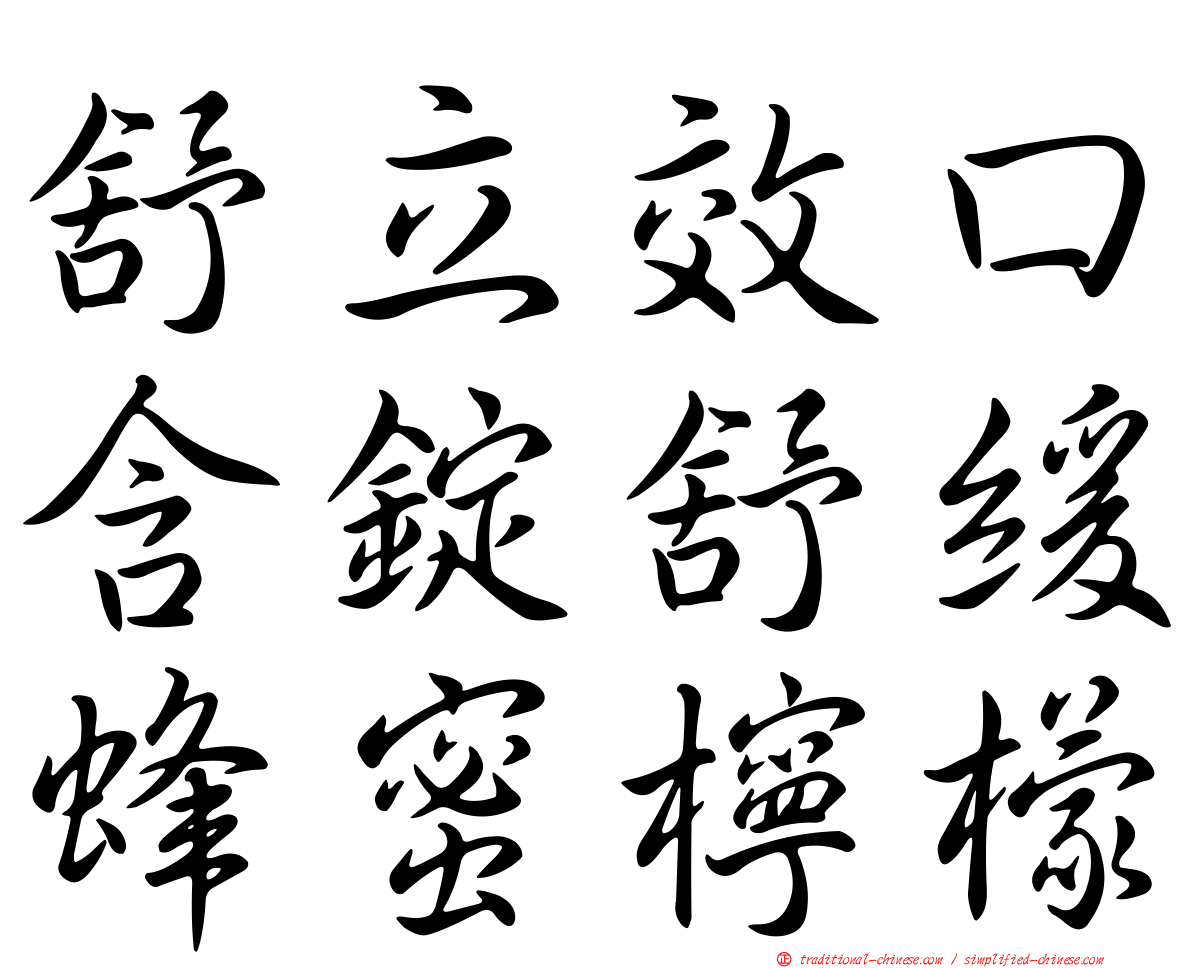 舒立效口
含錠舒緩
蜂蜜檸檬
正 traditional-chinese.com / simplified-chinese.com